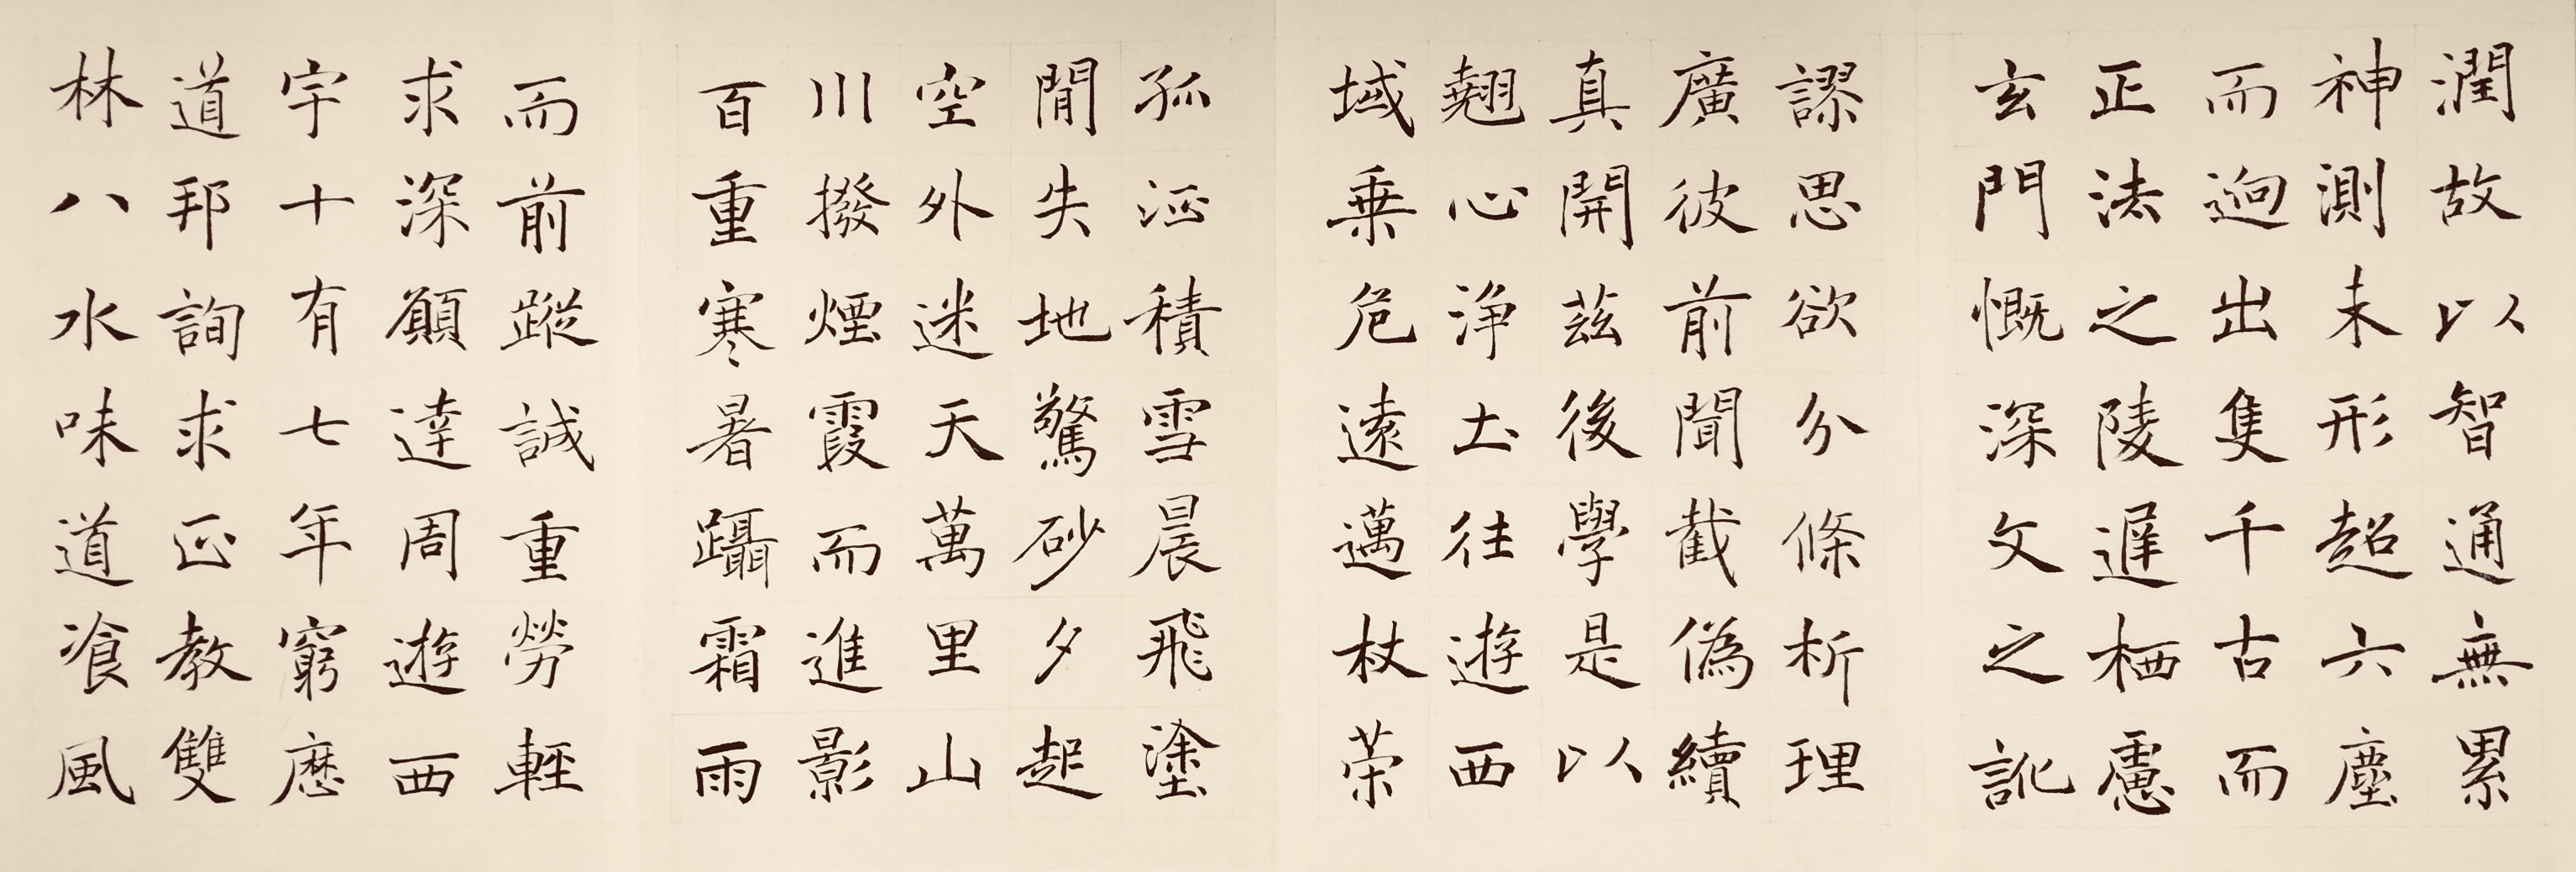 潤故以智通無累
神測未形超六塵
而迥出隻千古而
正法之陵遲栖慮
玄門慨深文之訛
謬思欲分條析理
廣彼前聞截偽續
真開茲後學是以
翹心淨土往遊西
域乗危遠邁杖荣
孤征積雪晨飛塗
閒失地驚砂夕起
空外迷天萬里山
川撥煙霞而進影
百重寒暑躡霜雨
而前蹤誠重勞輕
求深願達周遊西
宇十有七年窮歷
道邦詢求正教雙
林八水味道飡風